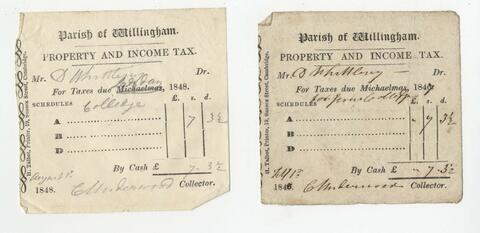 Parish of Willingham.
PROPERTY AND INCOME TAX.
Mr. D Whittley Dr.
For Taxes due Michaelmas, 1848.
SCHEDULES £. s. d.
A 7 3½
B
D
By Cash £ 7 3½
1848. C Underwood Collector.
H. Talbot, Printer, 19, Sussex Street, Cambridge.
Parish of Willingham.
PROPERTY AND INCOME TAX.
Mr. D Whittley Dr.
For Taxes due Michaelmas, 184
SCHEDULES £. s. d.
A - 7 3½
B
D
By Cash £ - 7 3½
184 C Underwood Collector.
H. Talbot, Printer, 19, Sussex Street, Cambridge.